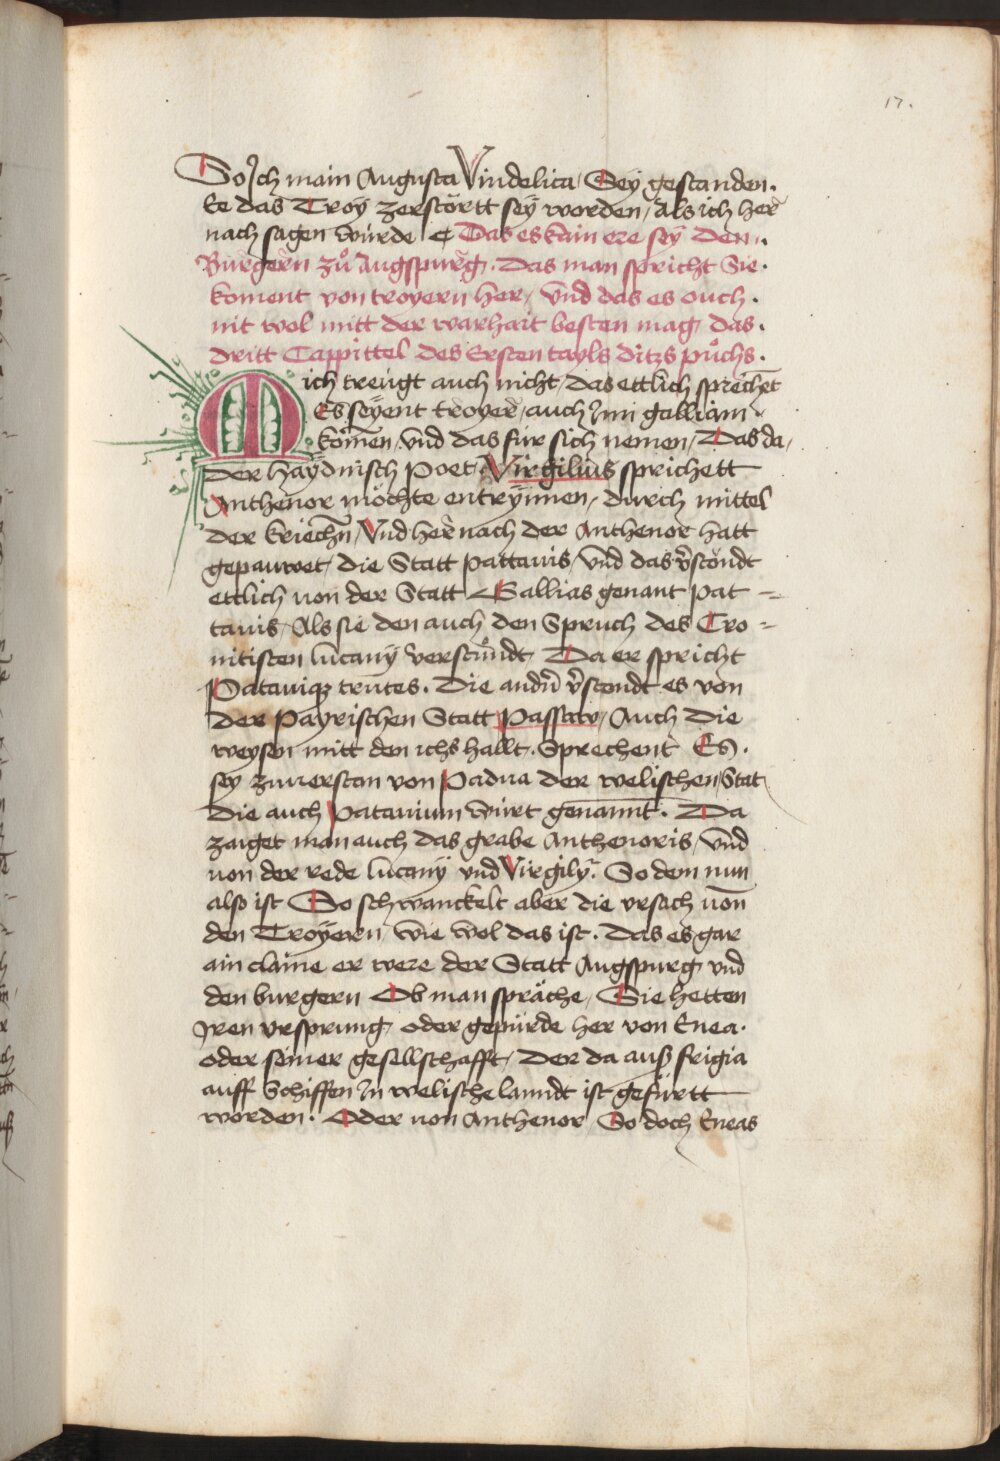 17.
So Ich main Augusta Vindelica / Sey gestanden.
Ee das Troy zerstörtt seÿ worden / Als ich her
nach sagen würde ¢ Das es kain ere seÿ den.
Bürgern zů Augspurg. Das man spricht Sie.
koment von troyern her / vnd das es ouch.
nit wol mitt der warhait besten mag / das.
dritt Cappittel des Ersten tayls ditzs půchs.
Mich treügt auch nicht / das ettlich sprechēt
Es seÿent troyer / auch Inn gallian
komēn / vnd das für sich nemen / Das da,
der haÿdnisch Poet / Virgilius sprichett
Anthenor möchte entrÿnnen / durch mittel
der kriechn̄ / Vnd hernach der Anthenor hatt
gepauwet / die Statt pattauis / vnd das v̄stöndt
ettlich von der Statt Gallias genant Pat =
tauis / Als sie den auch den Spruch des Cro =
nitisten lucanÿ verstůndt / Da er spricht
Patauiqz trūtes. Die andn̄ v̄stondt es von
der Payrischen Statt Passaw / Auch die
weysen mitt den ichs hallt. Sprechent Es.
sey zuuerstan von Padua der welischen Stat
die auch Patauium würt genānnt. Da
zaiget man auch das grabe Anthenoris / vnd
von der rede lucanÿ vnd Virgilÿ. So dem nun
also ist So schwanckelt aber die vrsach von
den Troÿern wie wol das ist. Das es gar
ain claine er were der Statt Augspurg vnd
den burgern Ob man spräche / Sie hetten
Iren vrsprung / oder gepürde her von Enea.
oder seiner gesellschafft / Der da auß frigia
auff Schiffen In welische lanndt ist gefürtt
worden. Oder von Anthenor / So doch Eneas